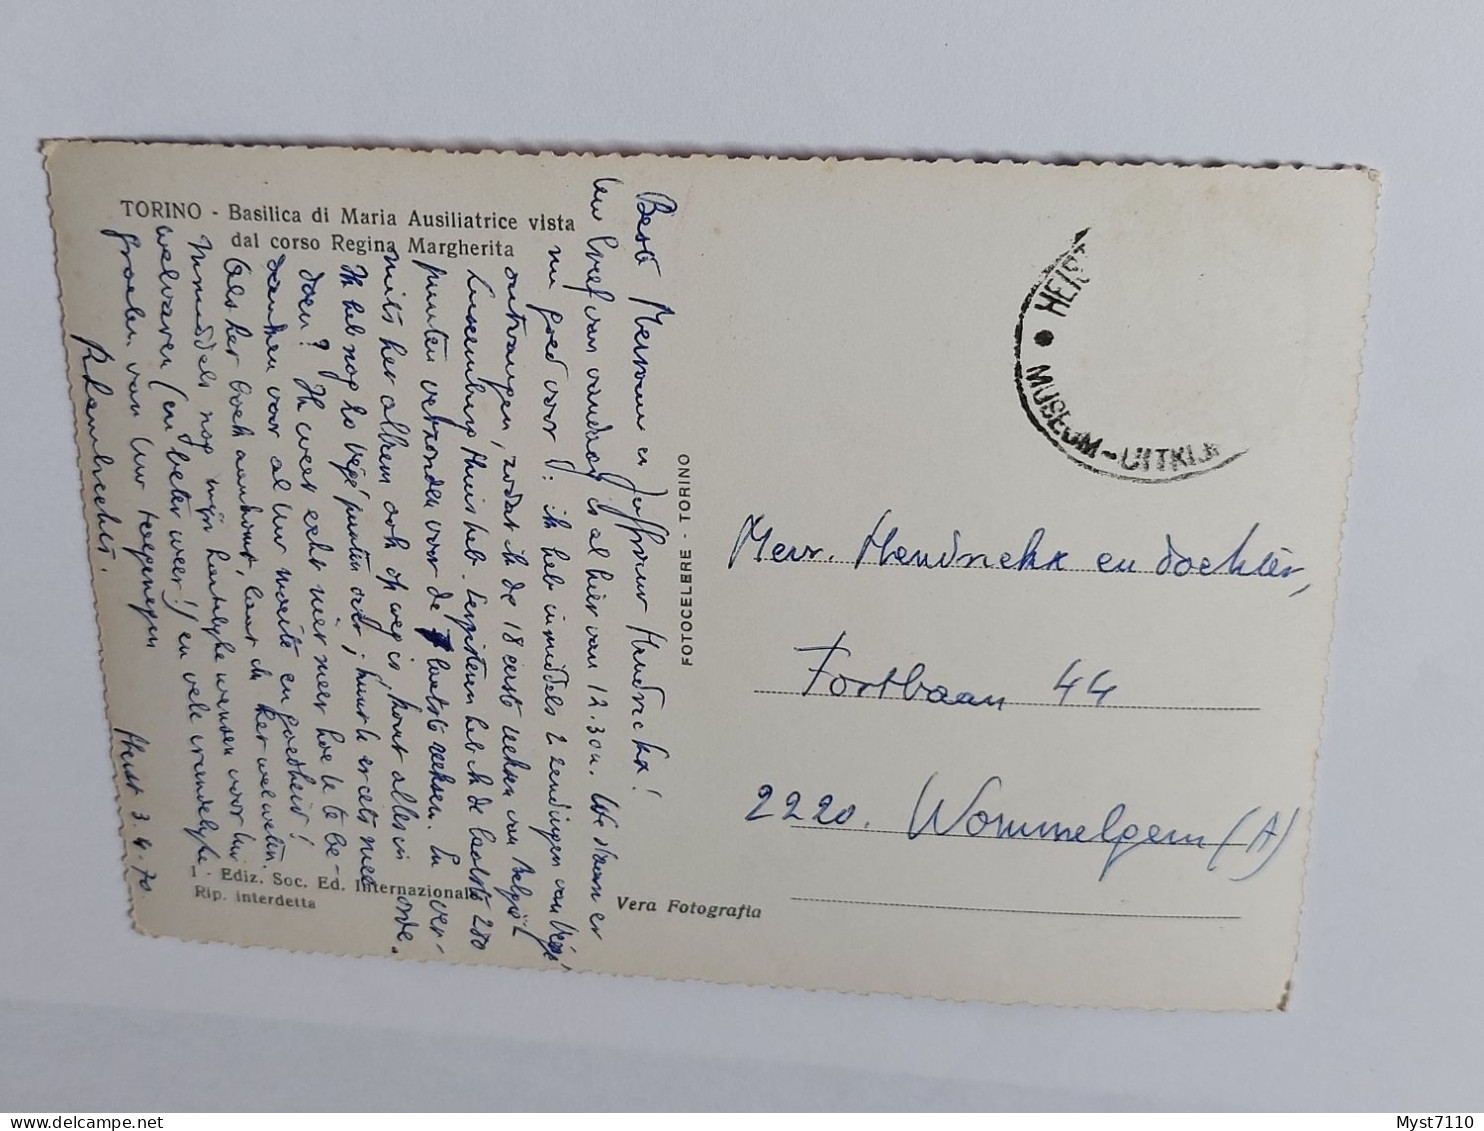 TORINO - Basilica di Maria Ausiliatrice vista
dal corso Regina Margherita
Beste Mevrouw en Juffrouw Hendrickx!
Uw brief van vandaag is al hier van 12.30u. We staan er
nu goed voor: ik heb inmiddels 2 zendingen van Végé
ontvangen, zodat ik de 18 eerste reeksen van België
Luxemburg thuis heb. Gisteren heb ik de laatste 200
punten verzonden voor de laatste reeksen. En ver-
mits het album ook op weg is, komt alles in orde.
Ik heb nog zo Végé punten over; kunt u er iets mee
doen? Ik weet echt niet meer hoe U te be-
danken voor al Uw moeite en goedheid!
Als het boek aankomt, laat ik het weten.
Inmiddels nog mijn hartelijke wensen voor Uw
welvaren (en beter weer!) en vele vriendelijke
groeten van Uw toegenegen
R Lambrechts.
Heist 3.4.70
1 - Ediz. Soc. Ed. Internazionale
Rip. interdetta
Vera Fotografia
FOTOCELERE - TORINO
HEIST
MUSEUM-UITKIJ
Mevr. Hendrickx en dochter,
Fortbaan 44
2220. Wommelgem (A)
Myst7110